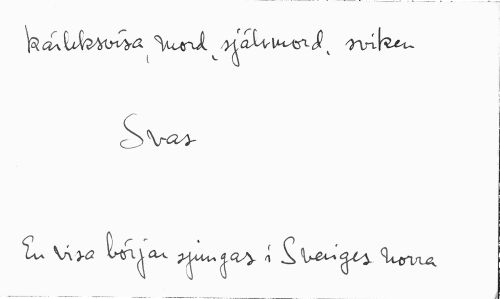 kärleksvisa, mord, självmord, sviken
Svas
En visa börjar sjungas i Sveriges norra